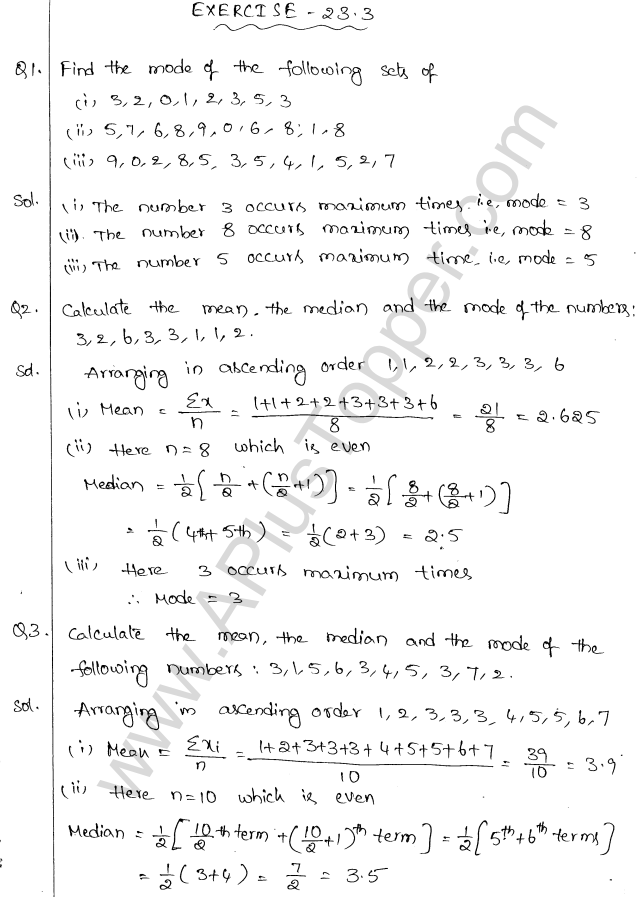 EXERCISE - 23.3
Q1. Find the mode of the following sets of
(i) 3, 2, 0, 1, 2, 3, 5, 3
(ii) 5, 7, 6, 8, 9, 0, 6, 8, 1, 8
(iii) 9, 0, 2, 8, 5, 3, 5, 4, 1, 5, 2, 7
Sol. (i) The number 3 occurs maximum times. i.e, mode = 3
(ii). The number 8 occurs maximum times i.e, mode = 8
(iii) The number 5 occurs maximum time. i.e, mode = 5
Q2. Calculate the mean, the median and the mode of the numbers:
3, 2, 6, 3, 3, 1, 1, 2.
Sol. Arranging in ascending order 1, 1, 2, 2, 3, 3, 3, 6
(i) Mean = Σx/n = (1+1+2+2+3+3+3+6)/8 = 21/8 = 2.625
(ii) Here n = 8 which is even
Median = 1/2 [n/2 + (n/2 + 1)] = 1/2 [8/2 + (8/2 + 1)]
= 1/2 (4th + 5th) = 1/2 (2+3) = 2.5
(iii) Here 3 occurs maximum times
∴ Mode = 3
Q3. Calculate the mean, the median and the mode of the
following numbers : 3, 1, 5, 6, 3, 4, 5, 3, 7, 2.
Sol. Arranging in ascending order 1, 2, 3, 3, 3, 4, 5, 5, 6, 7
(i) Mean = Σxi/n = (1+2+3+3+3+4+5+5+6+7)/10 = 39/10 = 3.9
(ii) Here n=10 which is even
Median = 1/2 [10/2 th term + (10/2 + 1)th term] = 1/2 [5th + 6th terms]
= 1/2 (3+4) = 7/2 = 3.5
www.APlusTopper.com